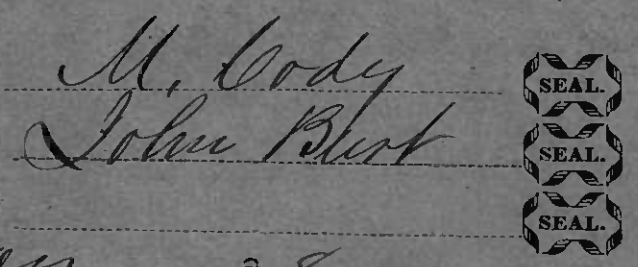 M. Cody SEAL.
John Burt SEAL.
SEAL.